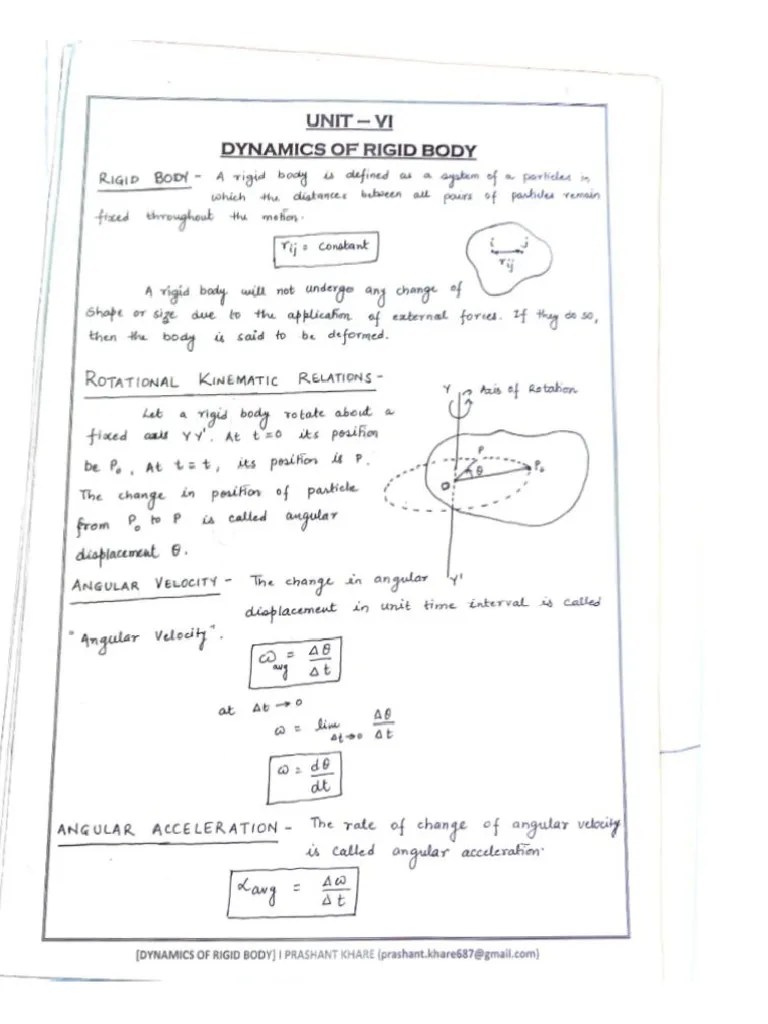 UNIT – VI
DYNAMICS OF RIGID BODY
RIGID BODY - A rigid body is defined as a system of a particles in
which the distances between all pairs of particles remain
fixed throughout the motion.
rij = constant
i j
rij
A rigid body will not undergo any change of
shape or size due to the application of external forces. If they do so,
then the body is said to be deformed.
ROTATIONAL KINEMATIC RELATIONS -
Y Axis of Rotation
Let a rigid body rotate about a
fixed axis YY'. At t=0 its position
be P₀, At t = t, its position is P.
The change in position of particle
from P₀ to P is called angular
displacement θ.
P
P₀
θ
O
Y'
ANGULAR VELOCITY - The change in angular
displacement in unit time interval is called
"Angular Velocity".
ωavg = Δθ/Δt
at Δt → 0
ω = lim Δt→0 Δθ/Δt
ω = dθ/dt
ANGULAR ACCELERATION - The rate of change of angular velocity
is called angular acceleration.
αavg = Δω/Δt
[DYNAMICS OF RIGID BODY] I PRASHANT KHARE (prashant.khare687@gmail.com)